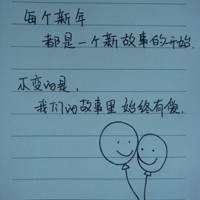 每个新年
都是一个新故事的开始.
不变的是,
我们的故事里始终有爱.